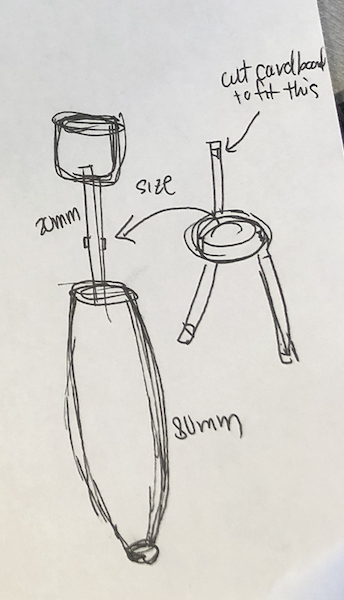 cut cardboard
to fit this
size
20mm
80mm